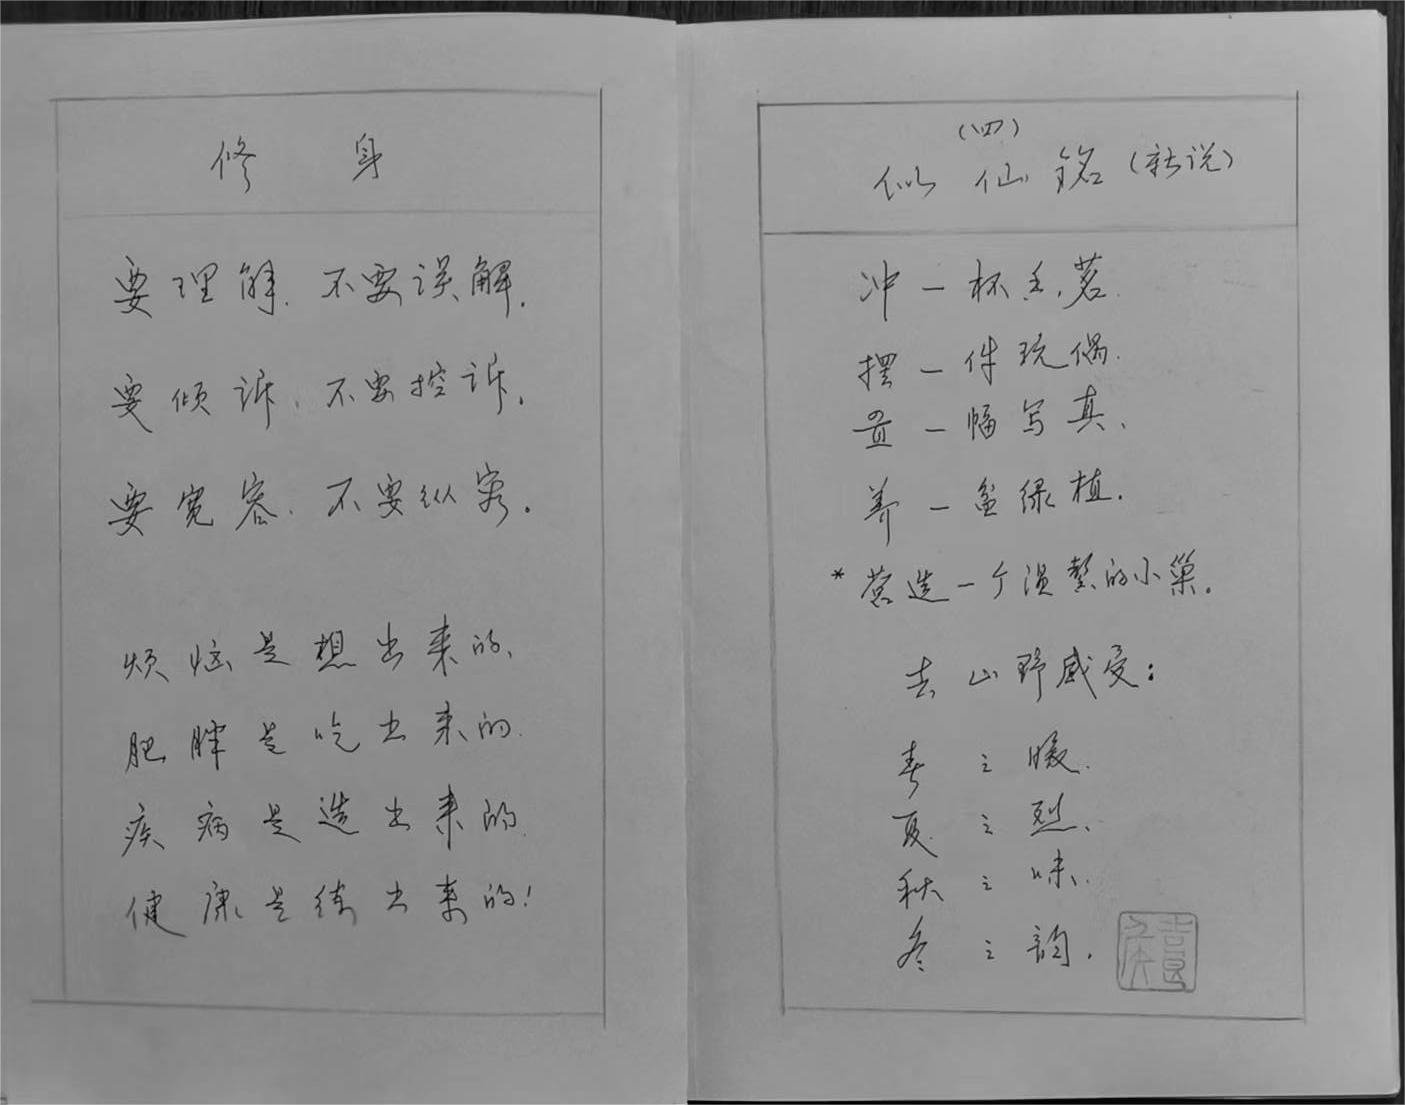 修 身
要理解、不要误解。
要倾诉、不要控诉。
要宽容、不要纵容。
烦恼是想出来的、
肥胖是吃出来的、
疾病是造出来的、
健康是练出来的！
（四）
似仙铭（新说）
冲一杯香茗、
摆一件玩偶、
置一幅写真、
养一盆绿植。
*营造一个温馨的小巢。
去山野感受：
春之暖、
夏之烈、
秋之味、
冬之韵。